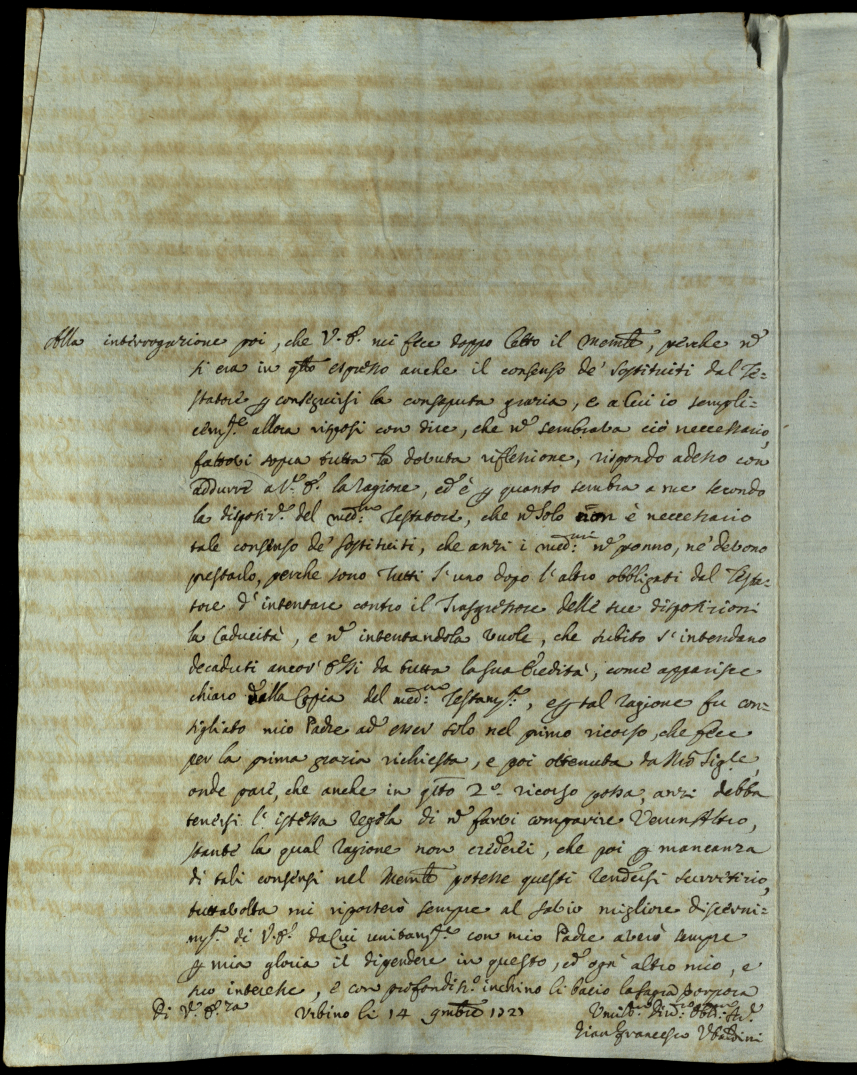 Alla interrogazione poi, che V. E. mi fece doppo letto il Memle, perche nō
si era in qto espresso anche il consenso de' sostituiti dal Te=
statore p conseguirsi la consaputa grazia, e a cui io sempli=
cemte allora risposi con dire, che nō sembrava ciò neccessario,
fattovi sopra tutta la dovuta riflessione, rispondo adesso con
addurre a V. E. la ragione, ed è p quanto sembra a me secondo
la disposize del medmo Testatore, che nō solo non è neccessario
tale consenso de' sostituiti, che anzi i medmi nō ponno, ne' debono
prestarlo, perche sono tutti l'uno dopo l'altro obbligati dal Testa=
tore d'intentare contro il Trasgressore delle sue disposizioni
la Caducità, e nō intentandola vuole, che subito s'intendano
decaduti ancor' Essi da tutta la sua Eredità, come apparisce
chiaro dalla Copia del medmo Testamto, e p tal ragione fu con=
sigliato mio Padre ad esser solo nel primo ricorso, che fece
per la prima grazia richiesta, e poi ottenuta da Nro Sigre,
onde pare, che anche in qto 2o. ricorso possa, anzi debba
tenersi l'istessa regola di nō farvi comparire Verun Altro,
stante la qual ragione non crederei, che poi p mancanza
di tali consensi nel Memle potesse questi rendersi surretizio,
tuttavolta mi riporterò sempre al savio migliore discerni=
mto di V. E. da cui unitamte con mio Padre averò sempre
p mia gloria il dipendere in questo, ed ogn' altro mio, e
suo interesse, e con profondismo inchino li bacio la Sagra Porpora
Di V. E.za Urbino li 14 9mbre 1721
Gian Francesco Ubaldini